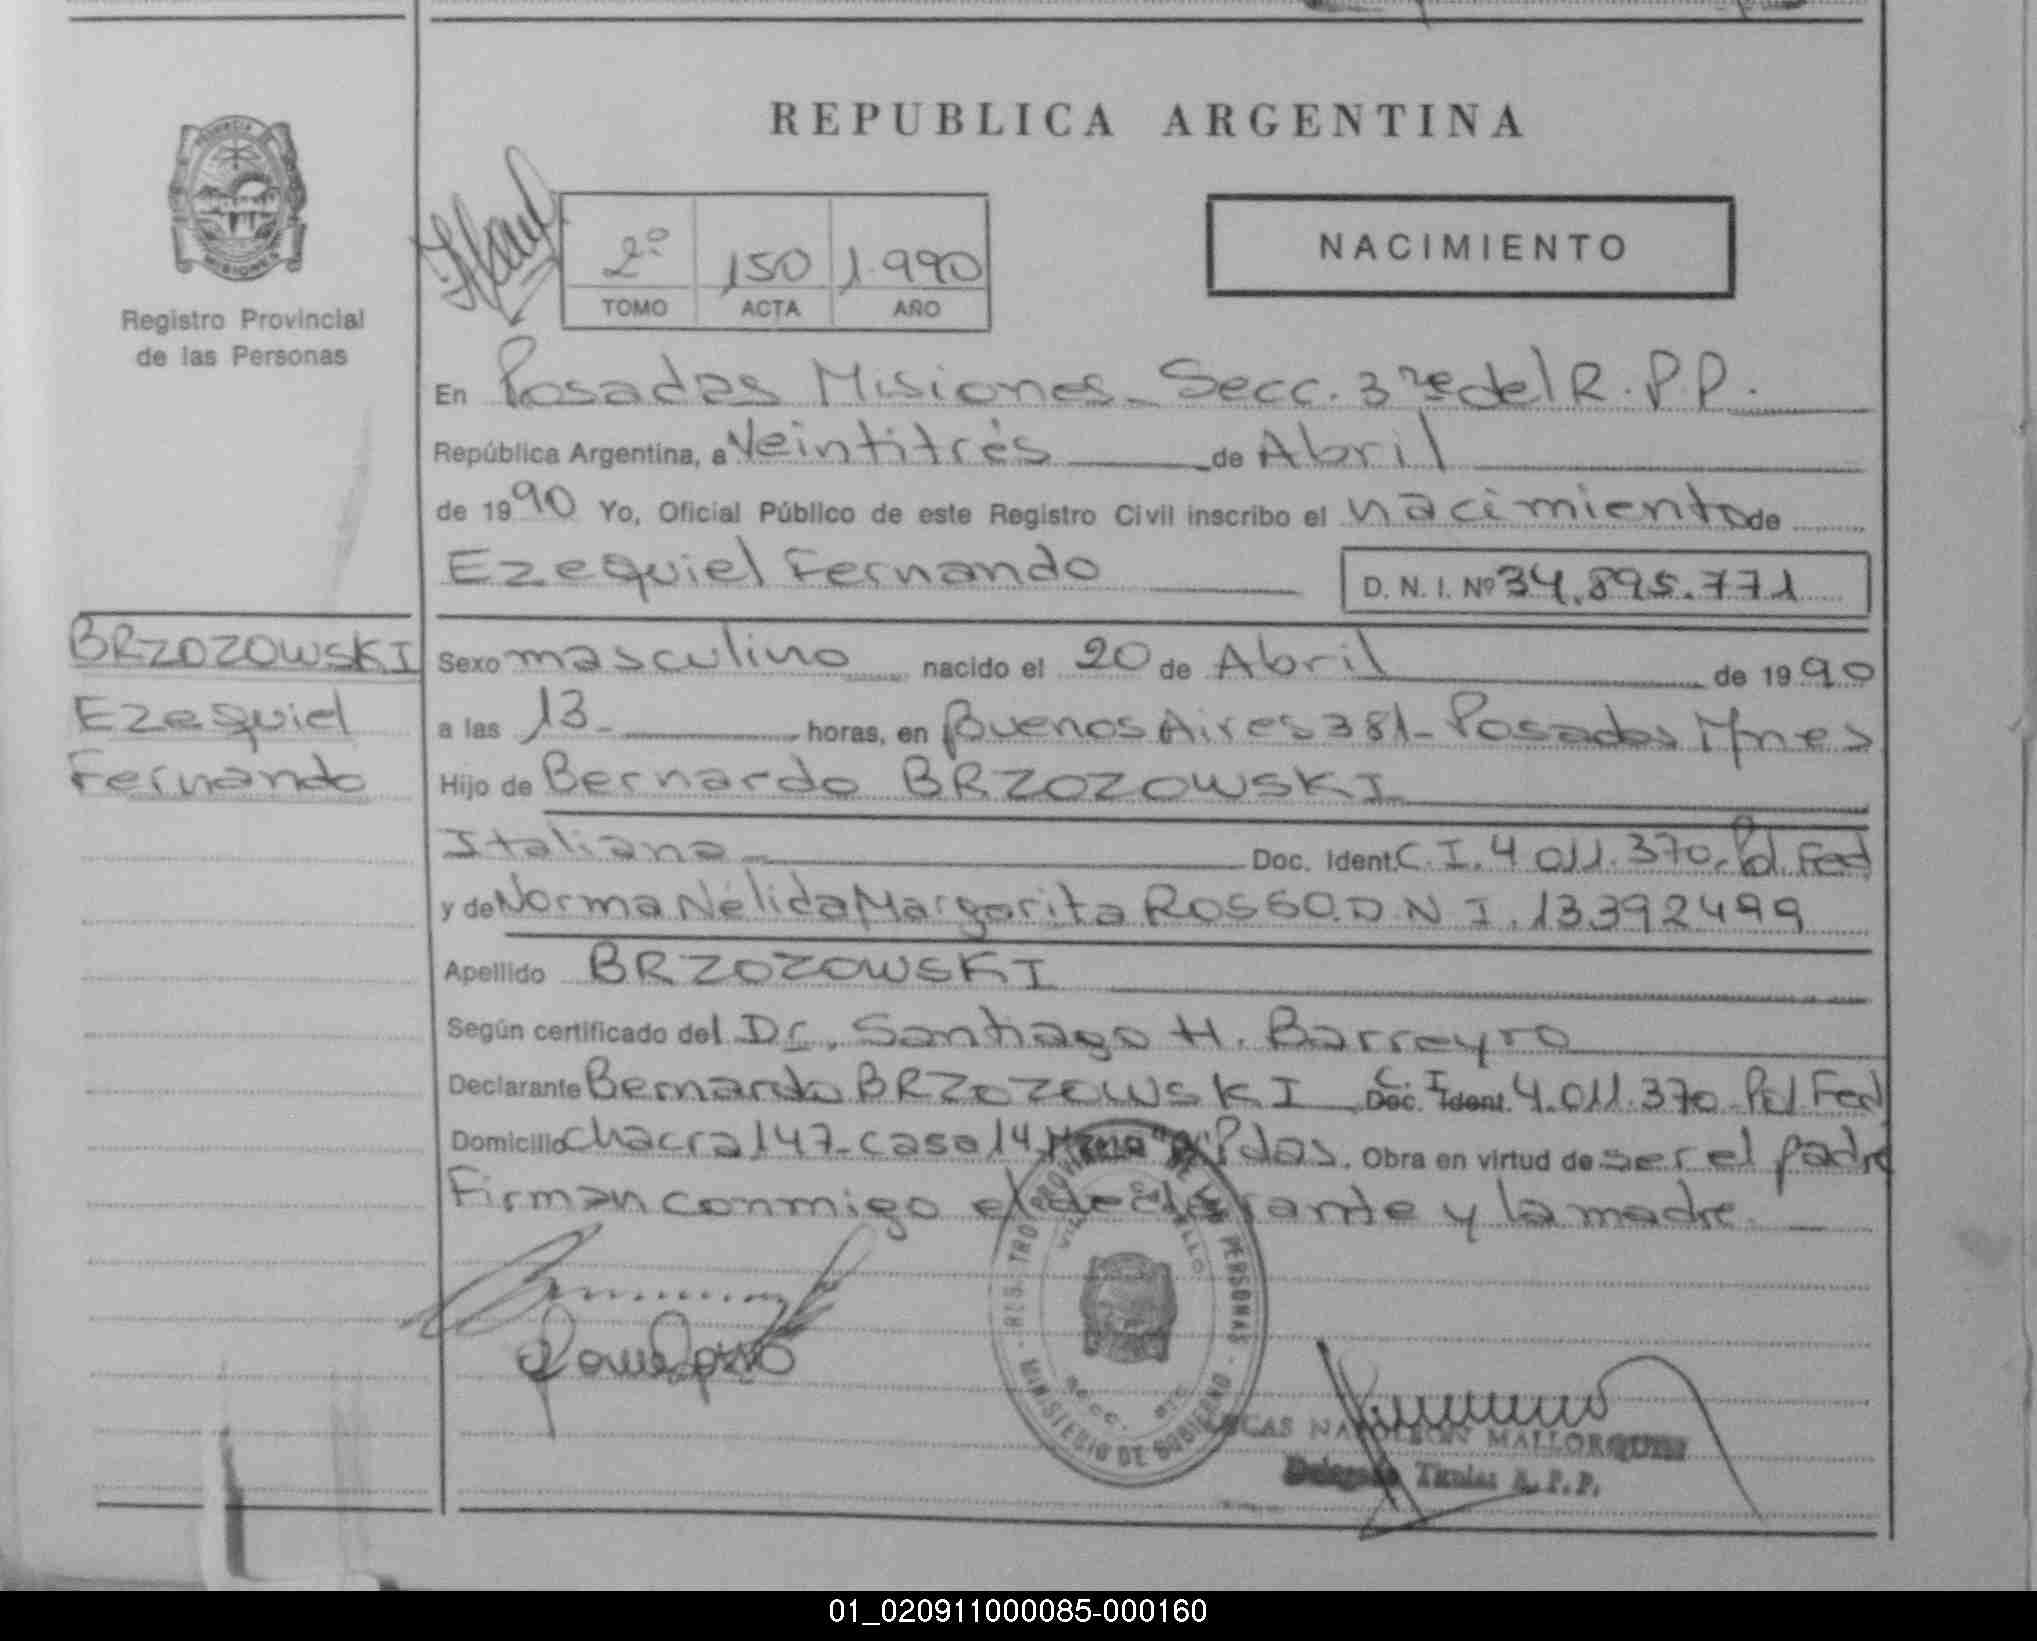 REPUBLICA ARGENTINA
PROVINCIA
MISIONES
Registro Provincial
de las Personas
2º 150 1.990
TOMO ACTA AÑO
NACIMIENTO
En Posadas Misiones - Secc. 3ra del R.P.P.
República Argentina, a Veintitrés de Abril
de 1990 Yo, Oficial Público de este Registro Civil inscribo el nacimiento de
Ezequiel Fernando
D. N. I. Nº 34.895.771
BRZOZOWSKI
Ezequiel
Fernando
Sexo masculino nacido el 20 de Abril de 1990
a las 13 - horas, en Buenos Aires 381 - Posadas Mnes
Hijo de Bernardo BRZOZOWSKI
Italiana - Doc. Ident. C.I. 4.011.370. Pol. Fed
y de Norma Nélida Margarita ROSSO. D N I. 13392499
Apellido BRZOZOWSKI
Según certificado del Dr. Santiago H. Barreyro
Declarante Bernardo BRZOZOWSKI C. I Doc. Ident. 4.011.370 Pol Fed
Domicilio Chacra 147 - casa 14 Pdas. Obra en virtud de ser el padre
Firman conmigo el declarante y la madre.
DE LAS PERSONAS
MINISTERIO DE GOBIERNO
SECC.
LUCAS NAPOLEON MALLORQUIN
Delegado Titular R.P.P.
01_020911000085-000160